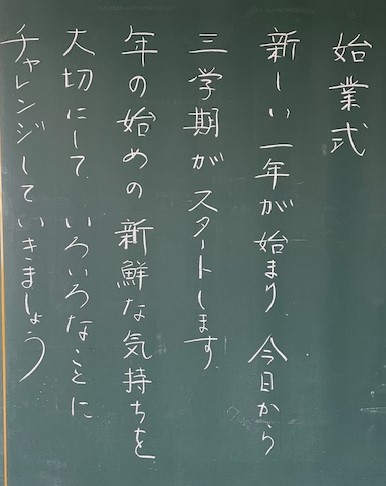 始業式
新しい一年が始まり、今日から
三学期がスタートします。
年の始めの新鮮な気持ちを
大切にして、いろいろなことに
チャレンジしていきましょう